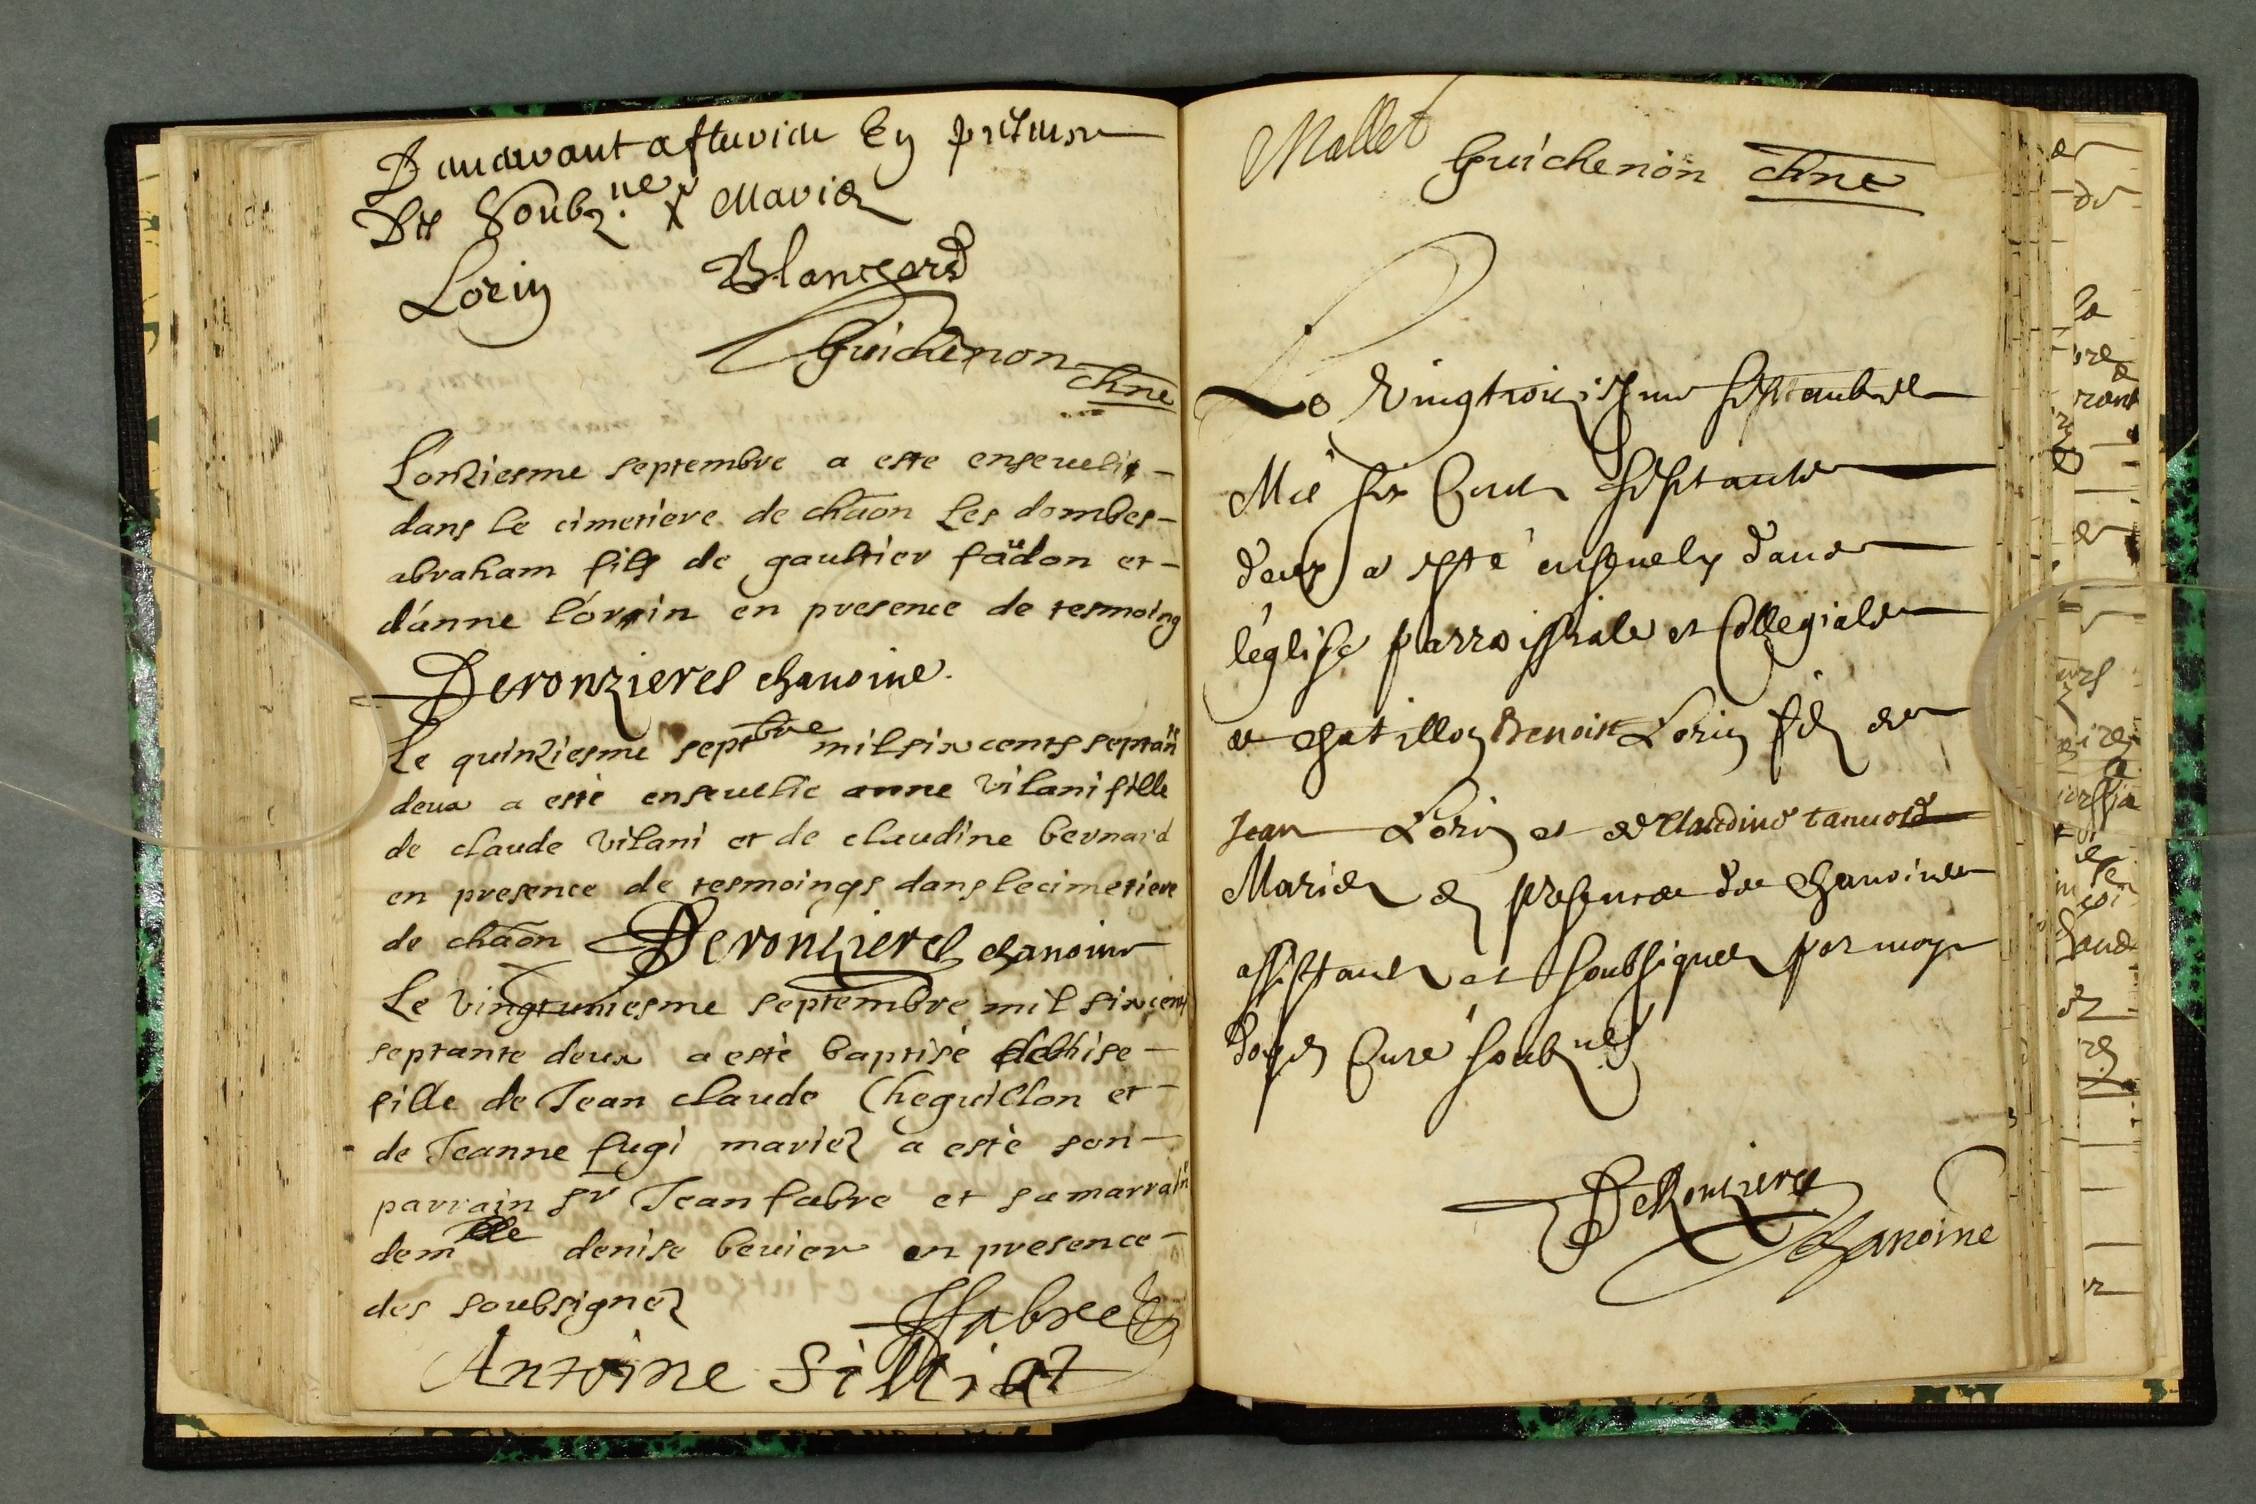 En presence
Des Soubz.nes x Mariez
Lorin Blanchard
Guichenon chne
L'onziesme septembre a este enseueli
dans le cimetiere de chãon Les dombes
abraham fils de gaultier faüdon et
d'anne lorin en presence de tesmoing
Deronzieres chanoine.
Le quinziesme septbre mil six cents septan
deux a esté enseuelie anne Vilani fille
de claude Vilani et de claudine bernard
en presence de tesmoings dans le cimetiere
de chãon Deronzieres chanoine
Le Vingtuniesme septembre mil six cent
septante deux a esté baptisé
fille de Jean claude Cheguillon et
de Jeanne fugi mariez a esté son
parrain sr Jean fabre et sa marrain
demlle denise beuier en presence
des soubsignez Ffabre
Antoine Silliat
Mallet Guichenon chne
Le Vingtroisiesme septembre
Mil six Cents septante
deux a esté enseuely dans
l'église parroissiale et Collegiale
de chatillon Benoist Lorin fils de
Jean Lorin et de Claudine
Mariez en presence de chanoines
assistants et soubsignez par moy
doyen Curé soubznes
DeRonzieres
chanoine